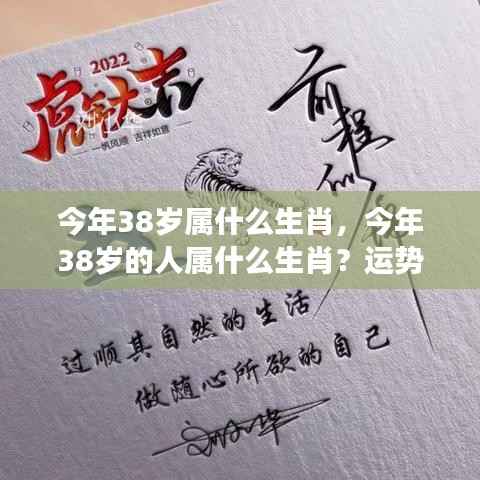 2022
虎年大吉
一帆风顺 吉祥如意
前程似
今年38岁属什么生肖，今年
38岁的人属什么生肖？运势
过顺其自然的生活
做随心所欲的自己